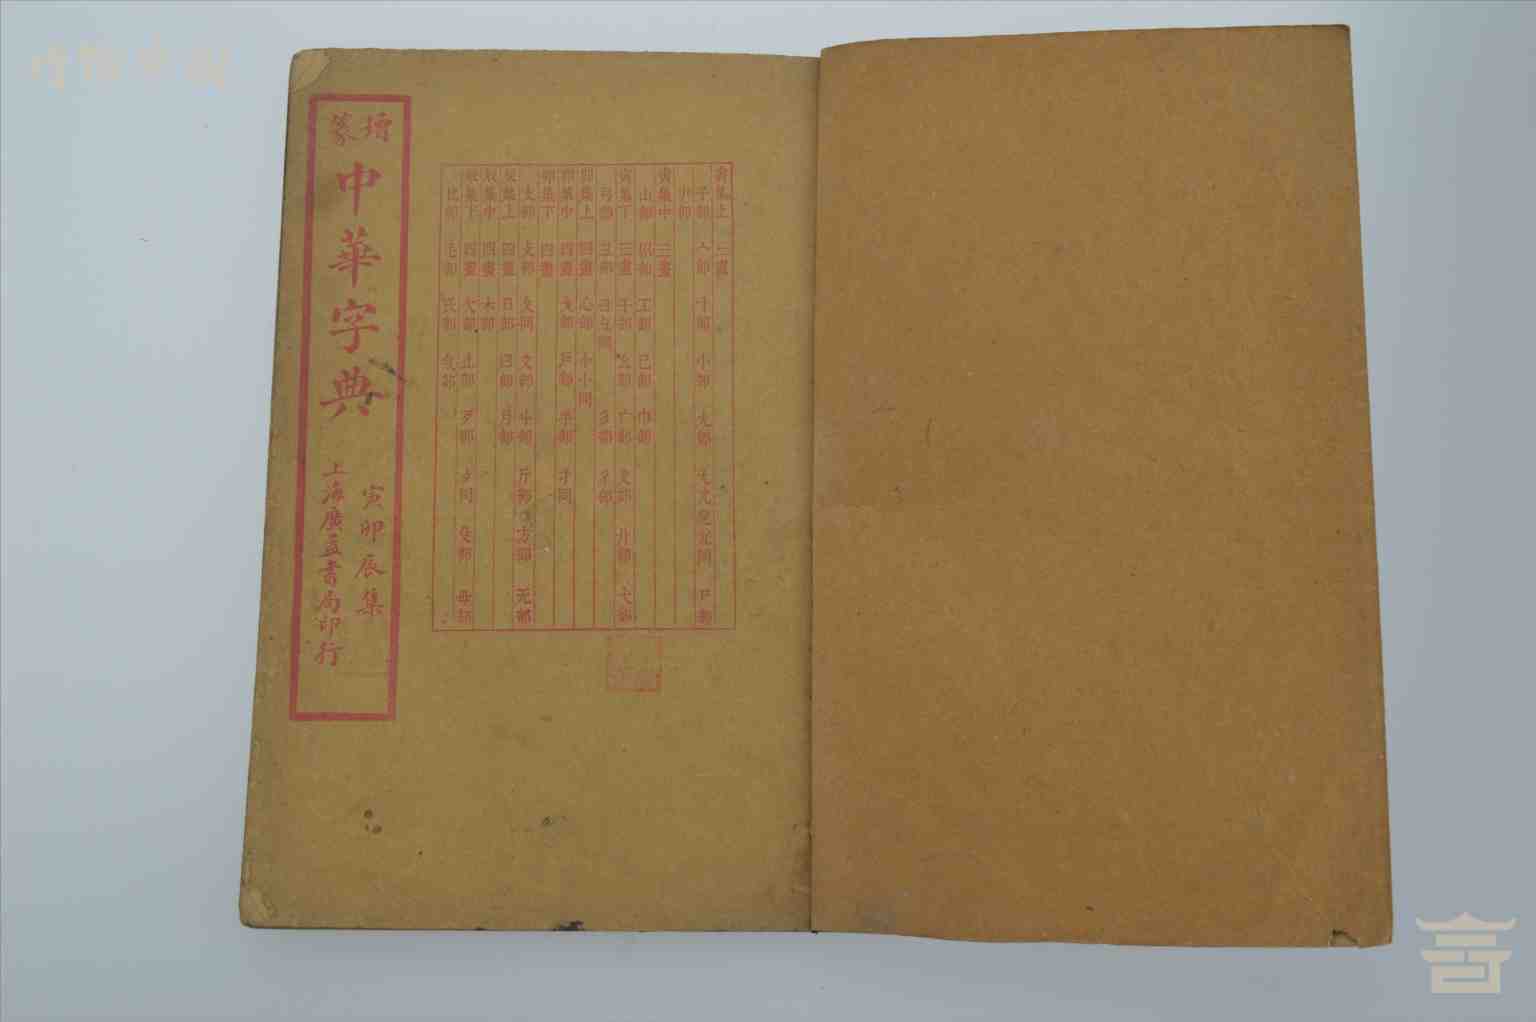 增篆
中華字典
寅卯辰集
上海廣益書局印行
寅集上 三畫
子部 宀部 寸部 小部 尢部 尸部
屮部
寅集中 三畫
山部 巛部 工部 己部 巾部
寅集下 三畫 干部 幺部 广部 廴部 廾部 弋部
弓部 彐部 彑同 彡部 彳部
卯集上 四畫 心部 忄小同
卯集中 四畫 戈部 戶部 手部 才同
卯集下 四畫
支部 攴部 攵同 文部 斗部 斤部 方部 无部
辰集上 四畫 日部 曰部 月部
辰集中 四畫 木部
辰集下 四畫 欠部 止部 歹部 歺同 殳部 毋部
比部 毛部 氏部 气部